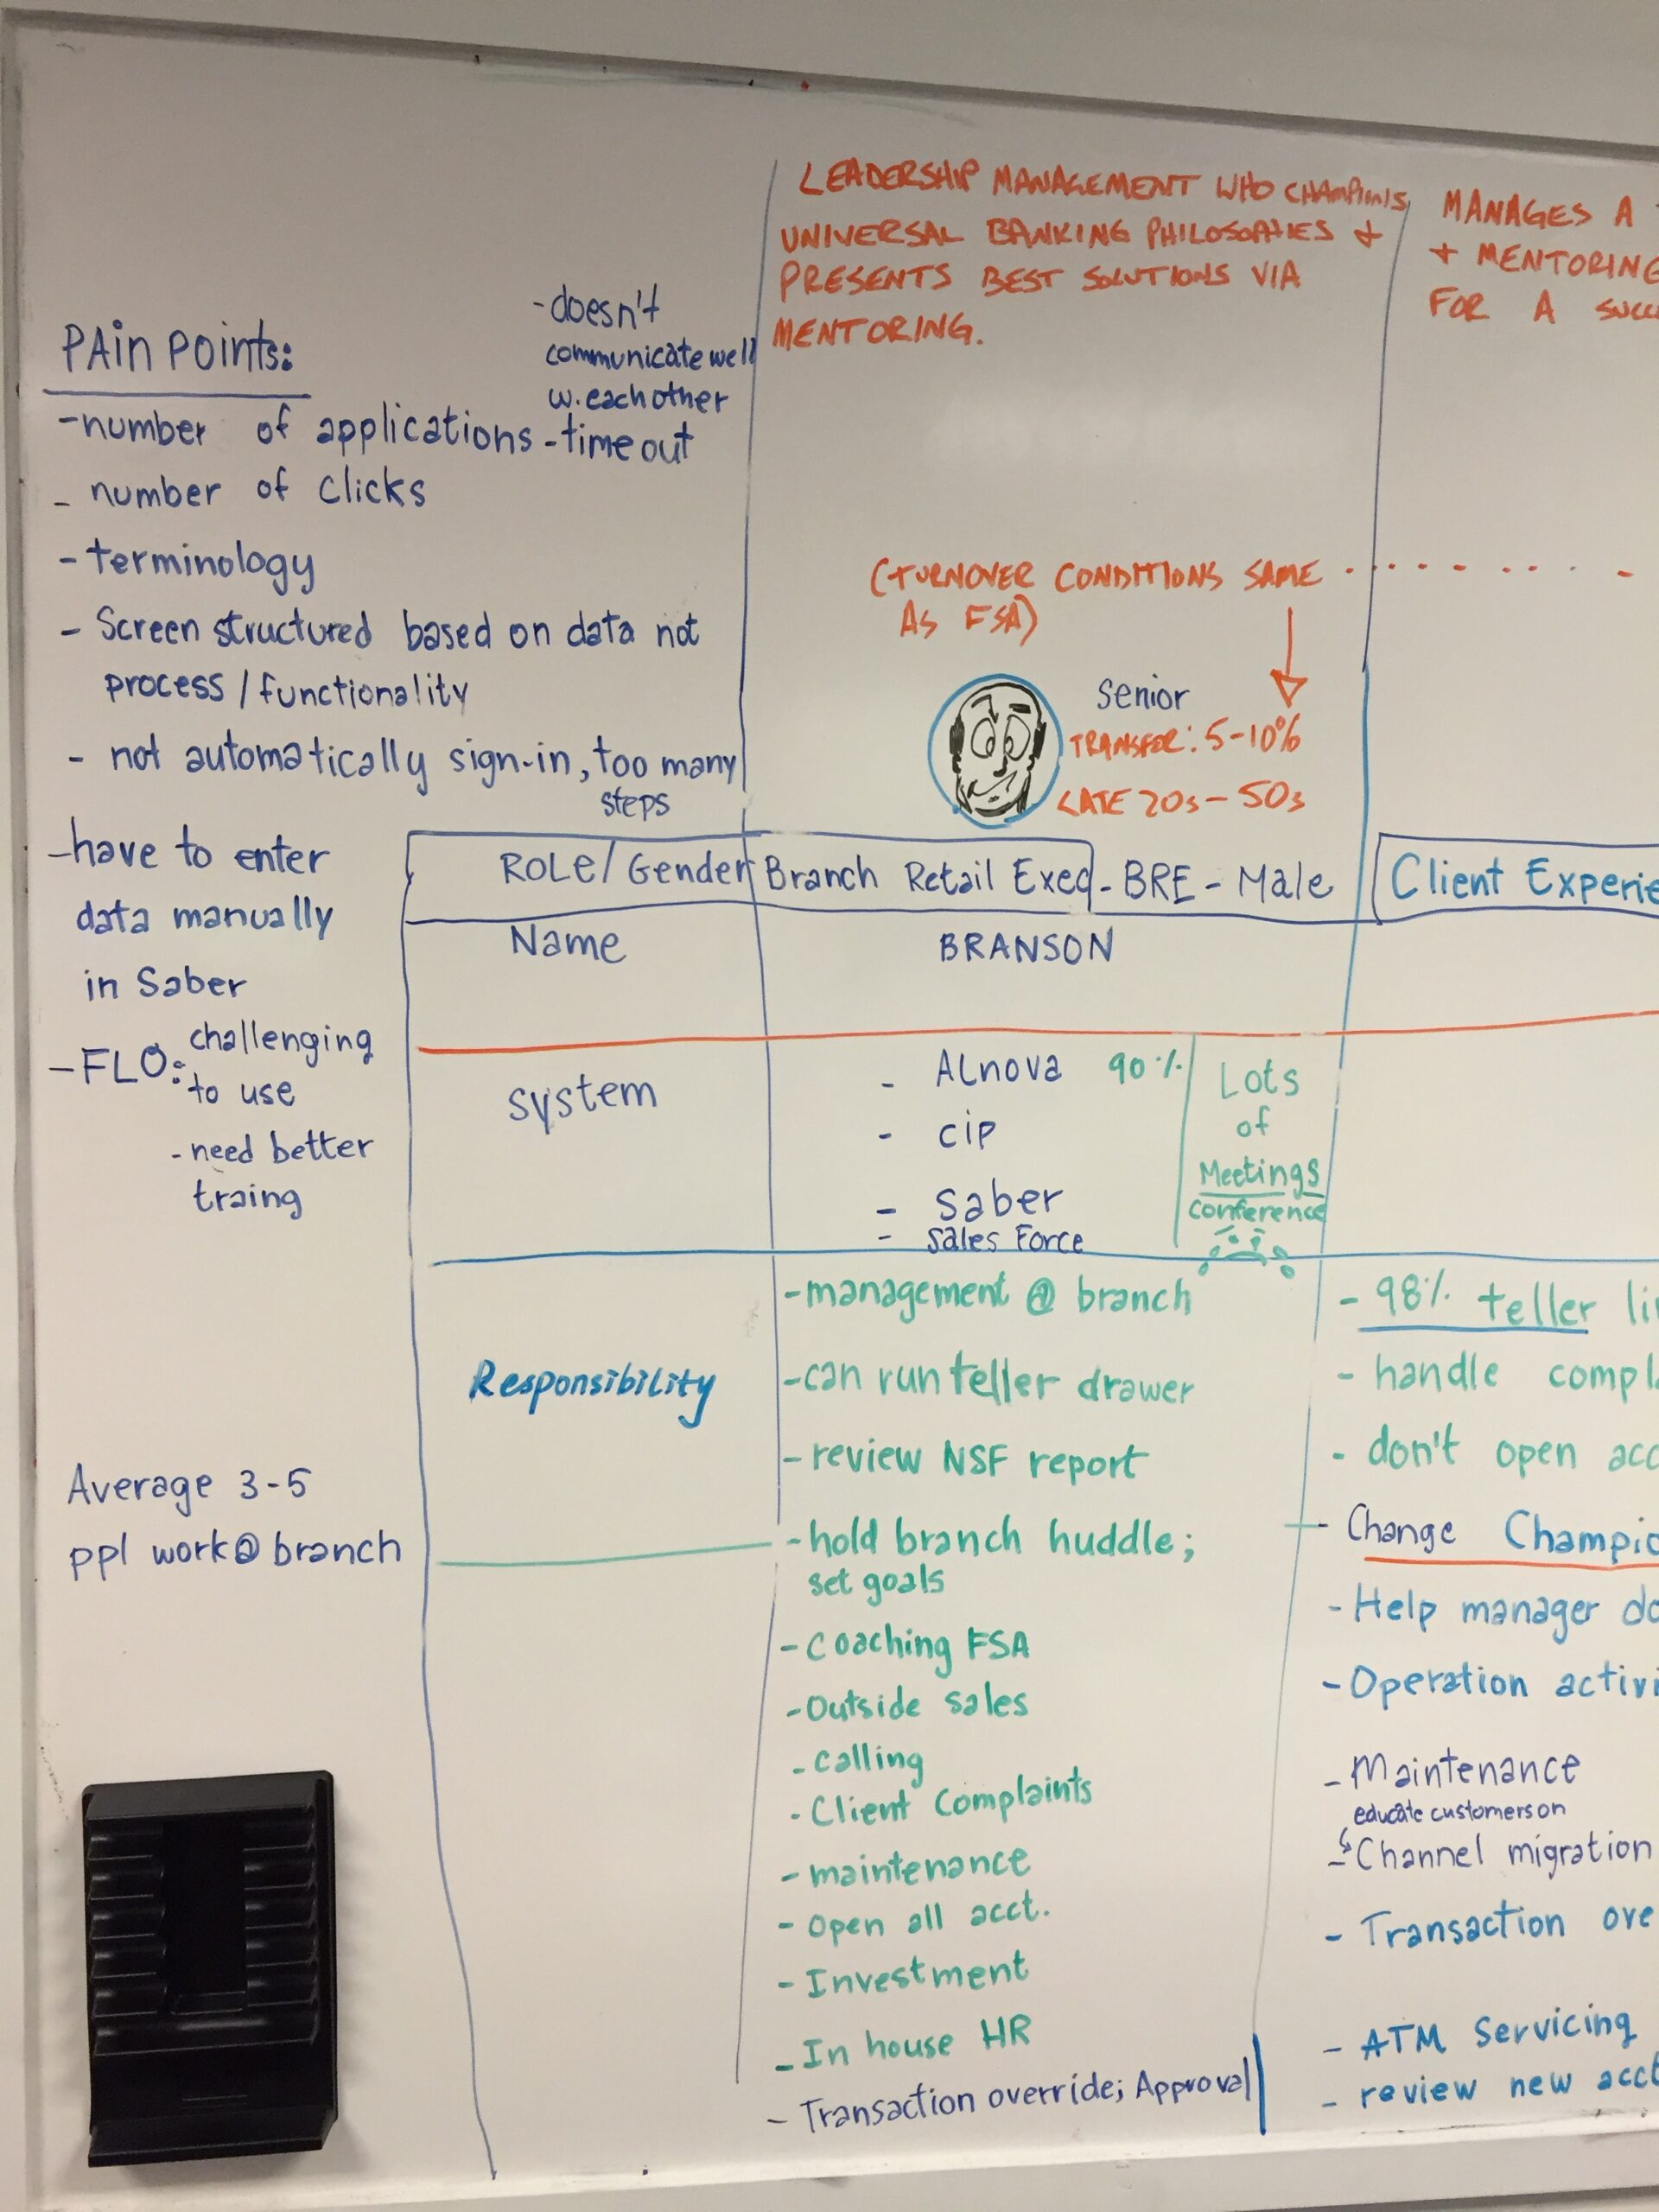 PAin Points:
-number of applications
-doesn't
communicate well
w. each other
-time out
- number of clicks
- terminology
- Screen structured based on data not
process/functionality
- not automatically sign-in, too many
steps
-have to enter
data manually
in Saber
-FLO: challenging
to use
- need better
traing
Average 3-5
ppl work@branch
LEADERSHIP MANAGEMENT WHO CHAMPIONS
UNIVERSAL BANKING PHILOSOPHIES +
PRESENTS BEST SOLUTIONS VIA
MENTORING.
(TURNOVER CONDITIONS SAME
AS FSA)
Senior
TRANSFER: 5-10%
LATE 20s - 50s
ROLE/Gender
Branch Retail Exec - BRE - Male
Name
BRANSON
System
- ALnova 90%
- cip
- Saber
- Sales Force
Lots
of
Meetings
conference
Responsibility
-management @ branch
-can run teller drawer
-review NSF report
-hold branch huddle;
set goals
-Coaching FSA
-Outside sales
-calling
-Client Complaints
-maintenance
-Open all acct.
-Investment
-In house HR
- Transaction override; Approval
MANAGES A
+ MENTORING
FOR A SUCC
Client Experie
- 98% teller li
- handle compla
- don't open acc
- Change Champio
- Help manager do
- Operation activi
- Maintenance
educate customers on
- Channel migration
- Transaction ove
- ATM Servicing
- review new acct